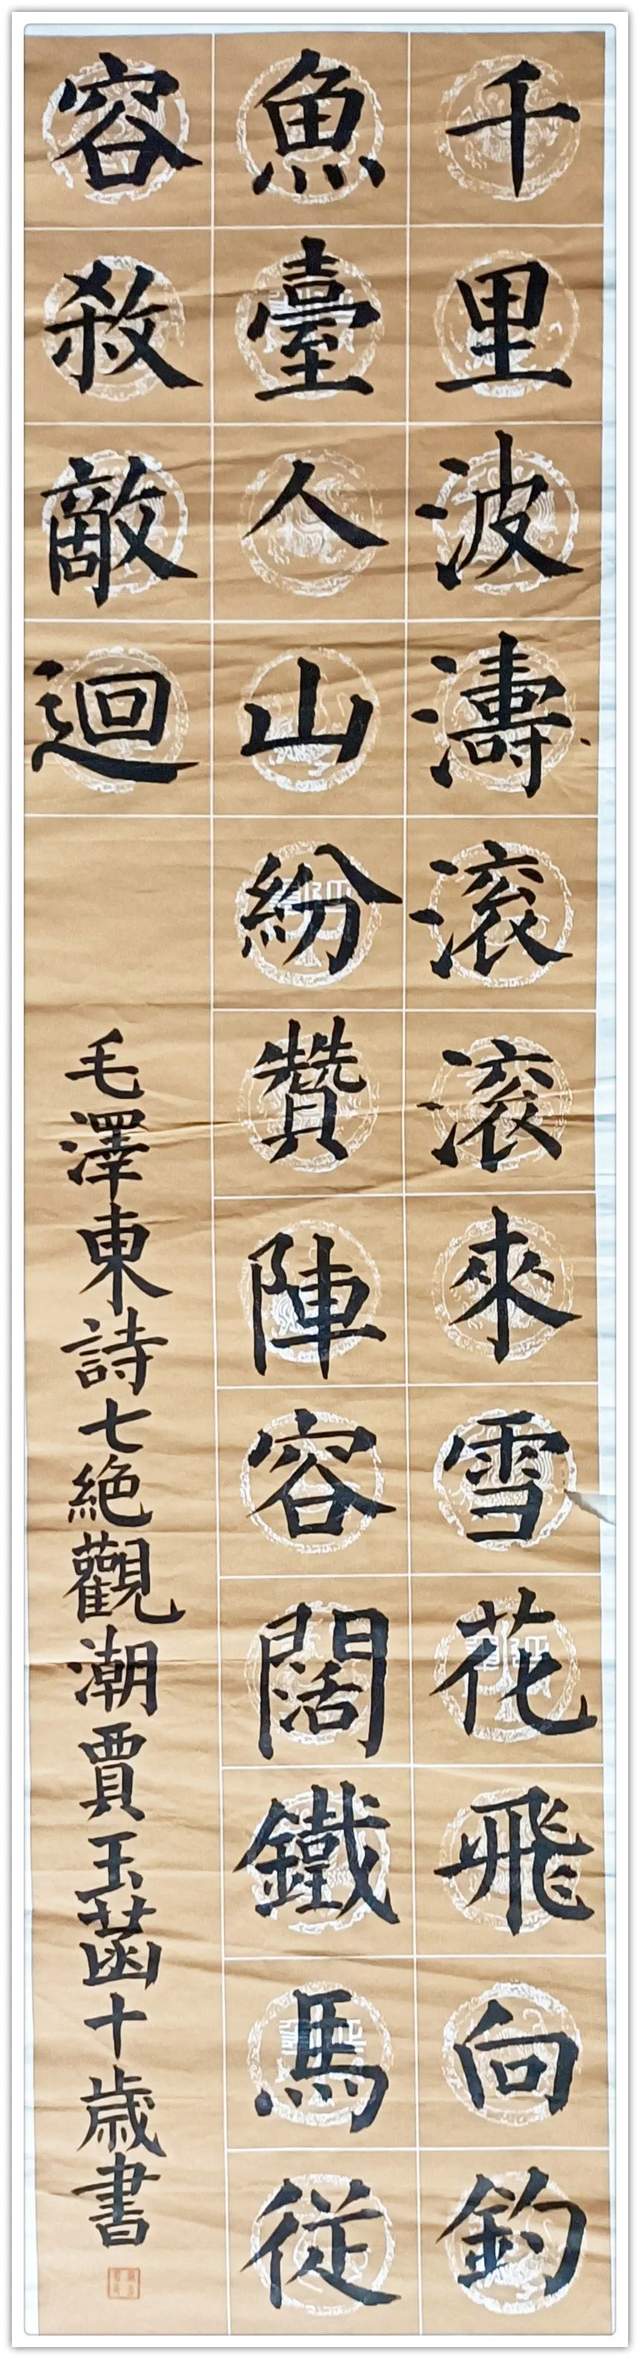 千里波濤滾滾來雪花飛向釣
魚臺人山紛贊陣容闊鐵馬從
容殺敵迴
毛澤東詩七絕觀潮賈玉菡十歲書